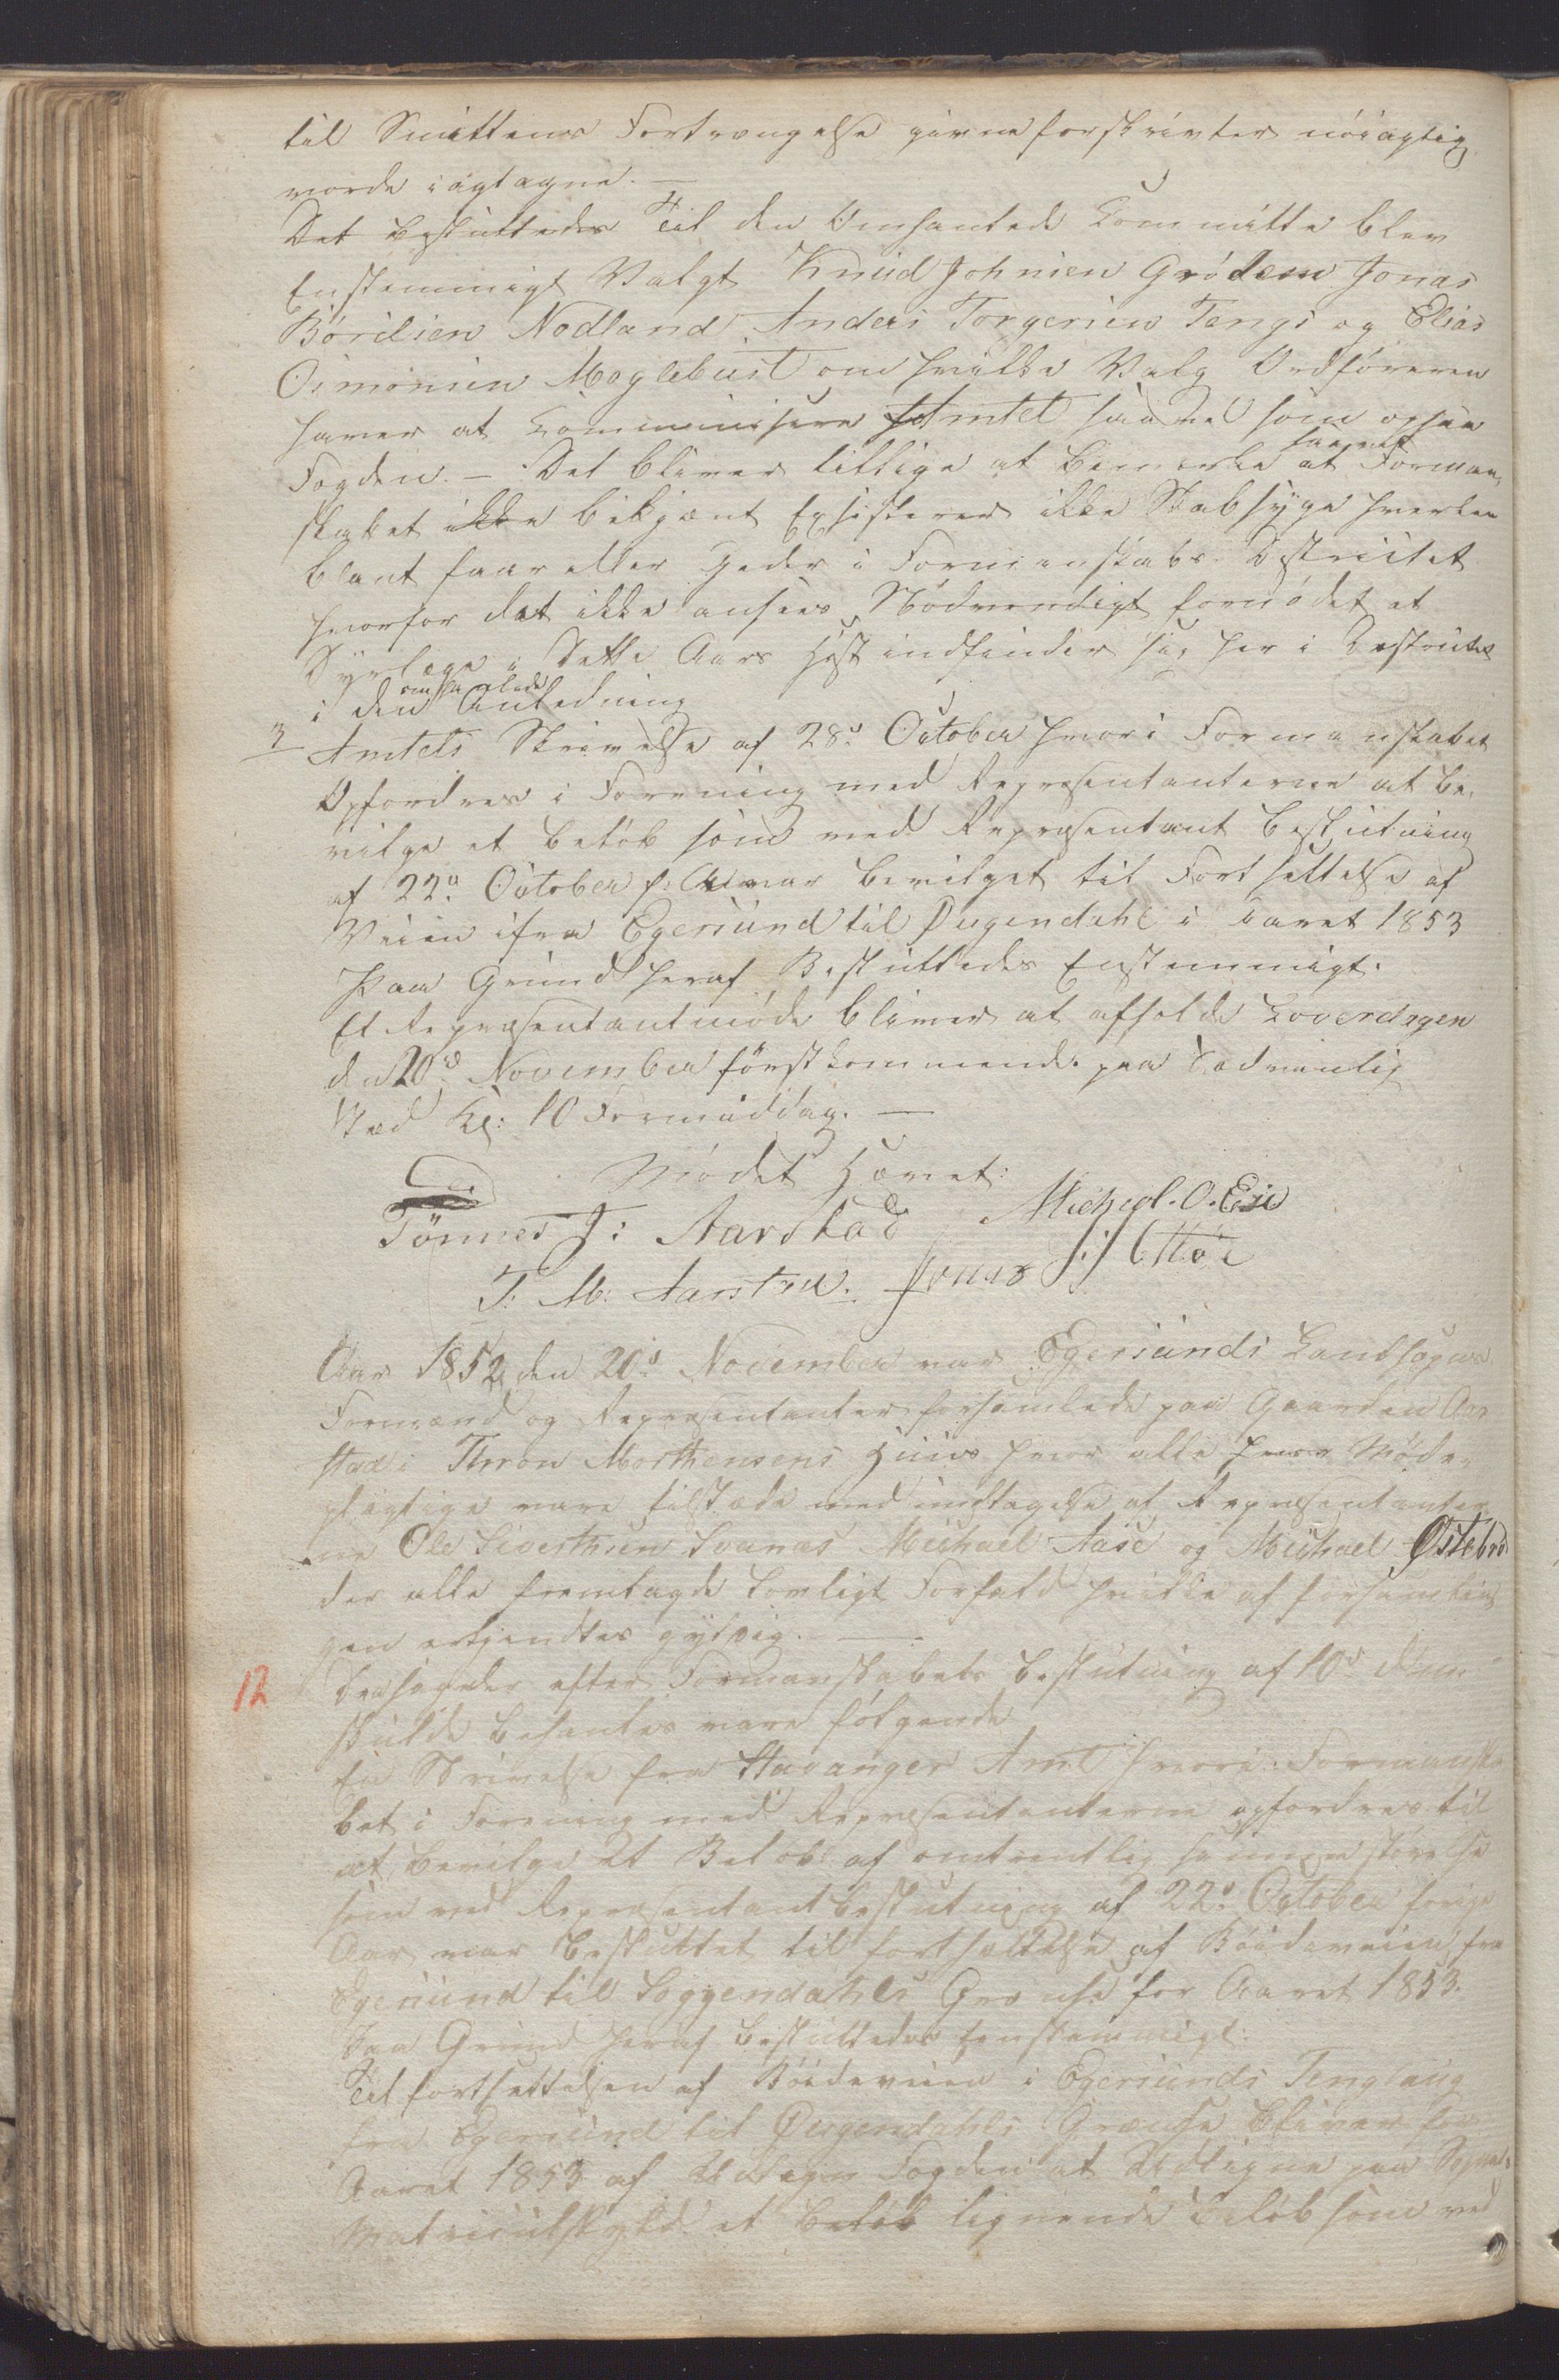 til Smittens Fortrængelse givne forskrivter nöiagtig
vorde iagtagne. —
Det besluttedes Til den Omhantede Committe blev
Enstemmigt Valgt Knud Johnsen Grödem Jonas
Börilsen Nodland Anders Torgersen Tengs og Elias
Osmonsen Moglebust om hvilke Valg Ordföreren
haver at Communisere Amtet saavel som ogsaa
Fogden. — Det bliver tillige at bemerke at saavit Forman,
skabet ikke bekjænt Exsisterer ikke Skabsyge hverken
blant faar eller Geder i Formanskabs Districtet
hvorfor det ikke ansees Nödvendigt fornödet at
Dyrlæge i Dette Aars Höst indfinder sig her i Destrictet
i den omhandlede Anledning
3 Amtets Skrivelse af 28de October hvori Formanskabet
Opfordres i Forening med Repræsentanterne at be,
vilge et beløb som ved Repræsentant beslutning
af 22de October f: A var bevilget til Fortsettelse af
Veien ifra Egersund til Sogendahl i aaret 1853
Paa Grund heraf Besluttedes Enstemmigt.
Et Repræsentantmöde bliver at afholde Löverdagen
den 20de November förstkommende paa Sædvanlig
Stæd Kl: 10 Formiddag. —
Mödet Hævet:
Tönnes J: Aarstad Michael. O. Eie
T. M: Aarstad. Jonas
Aar 1852 den 20de November var Egersunds Landsogns
Formænd og Repræsentanter forsamlede paa Gaarden Aar
stad i Thron Morthensens Huus hvor alle hvor Möde,
pligtige vare tilstæde med undtagelse af Repræsentanter
ne Ole Siverthsen Svanas Michael Aase og Michael Östebrö
der alle fremlagde lovligt Forfald hvilke af forsamlin
gen erkjendtes gyldig. —
12 Sa sager der efter Formanskabets beslutning af 10de dennes
skulde behandles vare fölgende
En Skrivelse fra Stavanger Amt hvori Formanska
bet i Forening med Repræsentanterne opfordres til
at bevilge et Belöb af omtrentlig samme störrelse
som ved Repræsentant beslutning af 22de October forige
Aar var besluttet til fortsættelse af Böideveien fra
Egersund til Soggendahls Grænse for Aaret 1853.
Paa Grund heraf besluttedes Enstemmigt:
Til fortsettelsen af Böideveien i Egersunds Tinglaug
fra Egersund til Sogendahls Grænse bliver for
Aaret 1853 af Fogden at Udligne paa Sognets
Matriculskyld et Belöb lignende Belöb som ved